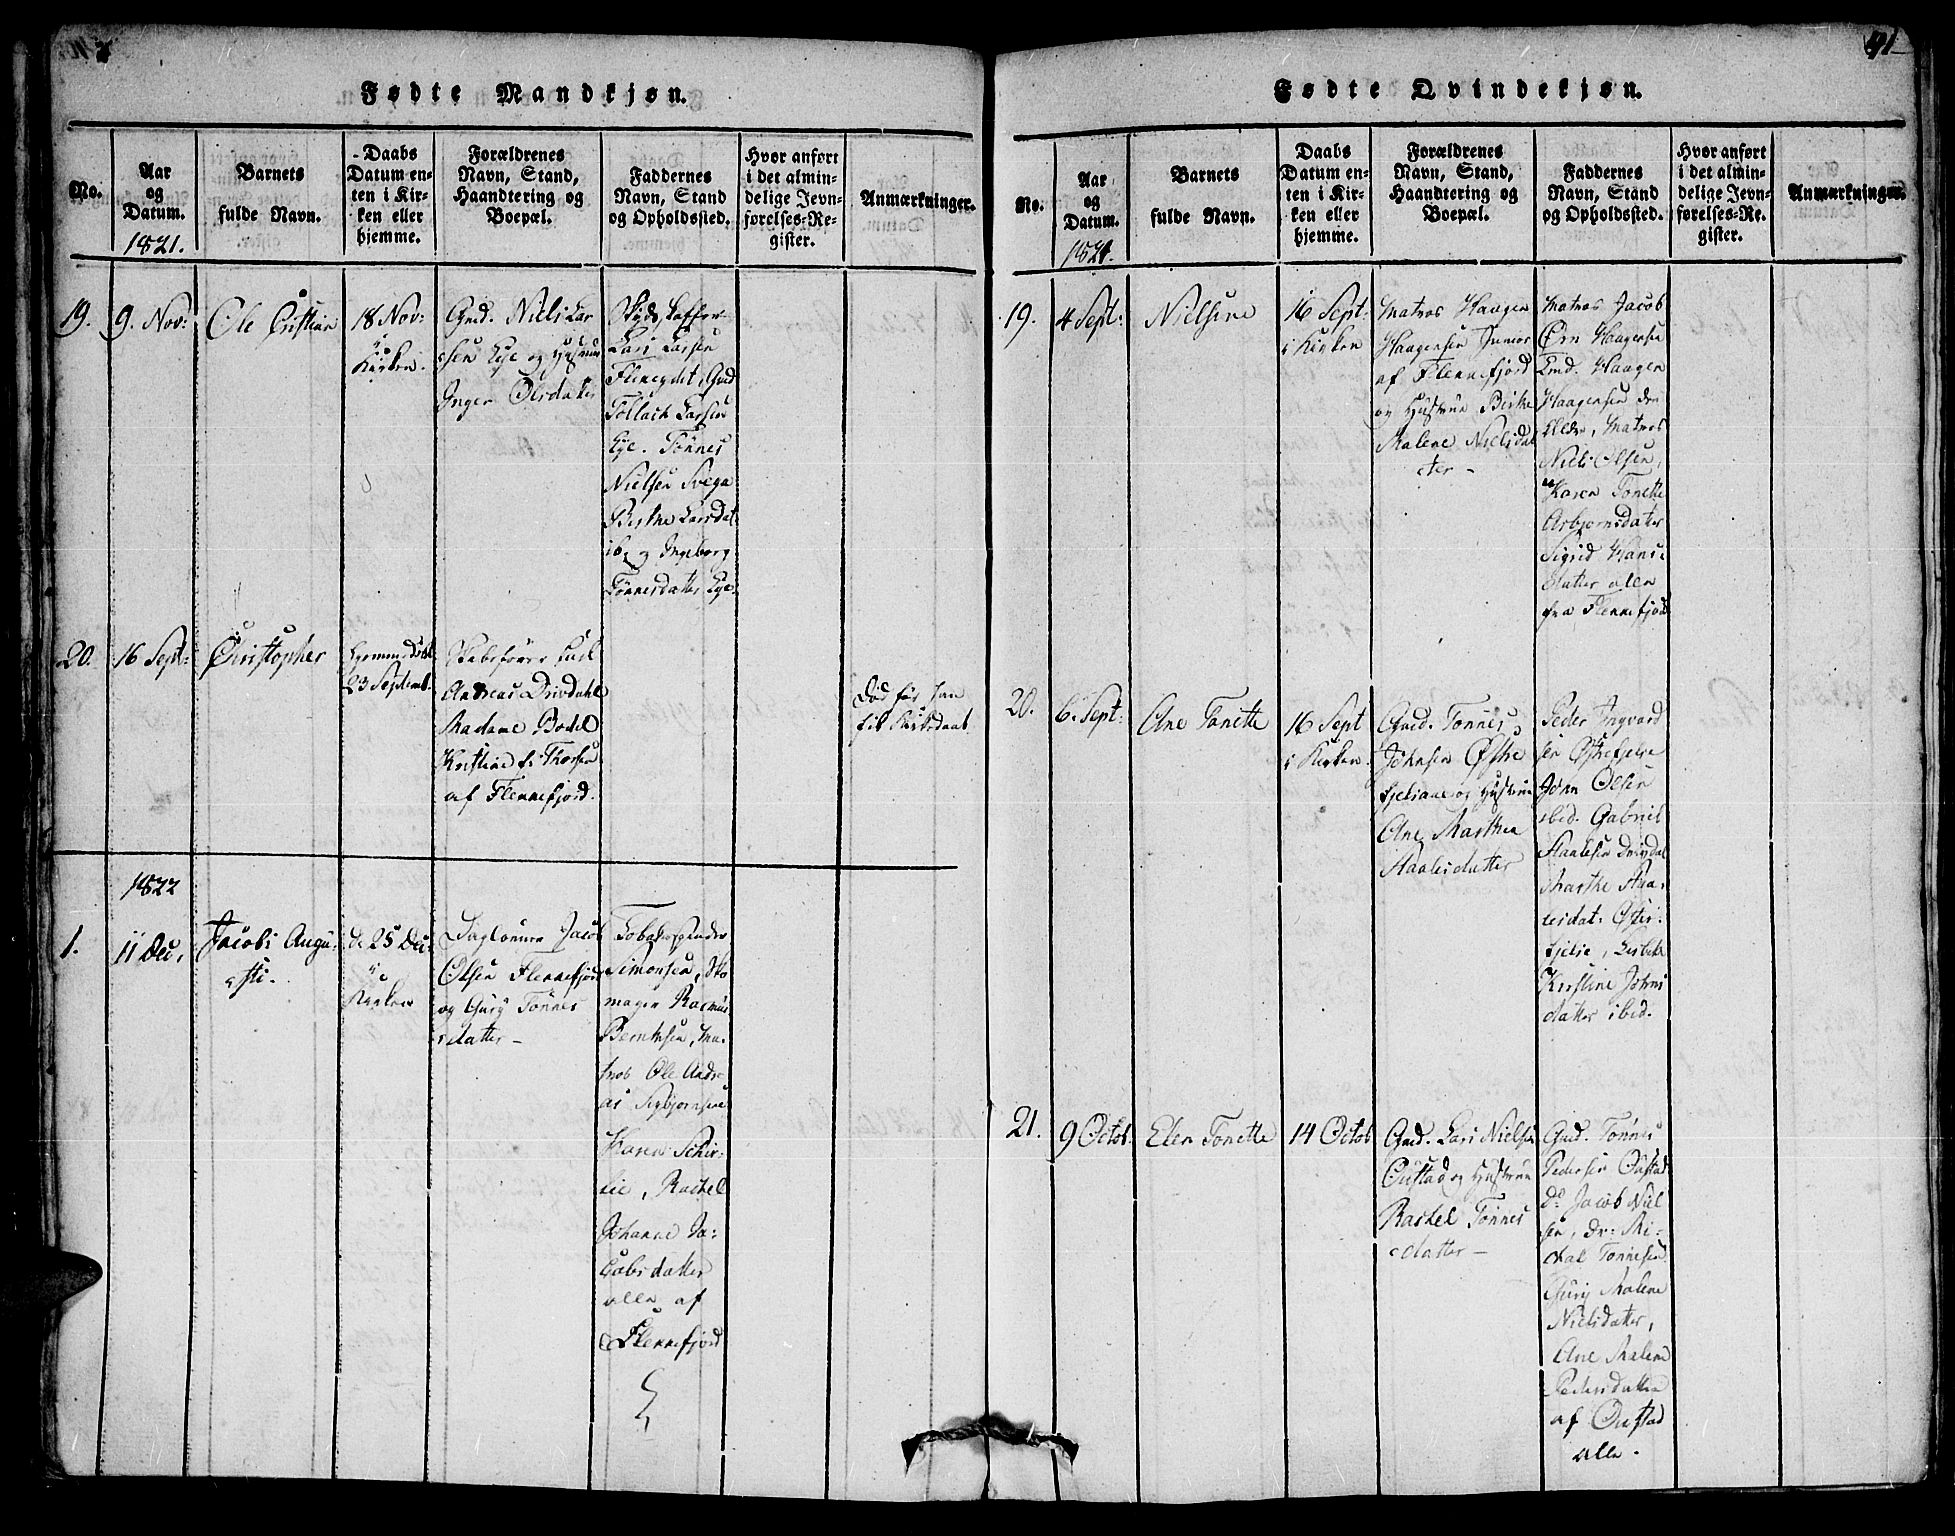 91
Fødte Mandkjøn.
No.
Aar
og
Datum.
1821.
Barnets
fulde Navn.
Daabs
Datum en-
ten i Kir-
ken eller
hjemme.
Forældrenes
Navn, Stand,
Haandtering og
Boepæl.
Faddernes
Navn, Stand
og Opholdssted.
Hvor anført
i det almin-
delige Jevn-
førelses-Re-
gister.
Anmærkninger.
19.
9. Nov:
Ole Cristian
18 Nov:
i
Kirken.
Gmd. Niels Lar
sen Eye og Hustrue
Inger Olsdatter
Lars Larsen
Flenegdet, Gmd
Tollach Larsen
Eye. Tönnes
Nielsen Svega
Berthe Larsdat
ib. og Ingeborg
Tönnesdatter Eye.
20.
16 Sept:
Christopher
Hjemmedöbt
23 Septemb.
Andreas Drivdahl
Madame Bodel
Kristine f. Thorsen
af Flekkefjord.
Död för han
fik Kirkedaab
1822
1.
11 Dec.
Jacobs Augu-
sti.
d. 25 Dec.
i
Kirken
Jacob
Olsen Flekkefjord
og Gury Tönnes
datter -
Tobakspinder
Simonsen, Sko
mager Rasmus
Berntsen, Ma-
tros Ole Andre
as Sigbjornsen
Karen Schir-
lie, Rachel
Johanne Ja-
cobsdatter
alle af
Flekkefjord
Fødte Qvindekjøn.
No.
Aar
og
Datum.
1821.
Barnets
fulde Navn.
Daabs
Datum en-
ten i Kir-
ken eller
hjemme.
Forældrenes
Navn, Stand,
Haandtering og
Boepæl.
Faddernes
Navn, Stand
og Opholdssted.
Hvor anført
i det almin-
delige Jevn-
førelses-Re-
gister.
Anmærkninger.
19.
4 Sept:
Nielsine
16 Sept:
i Kirken
Matros Haagen
Haagensen Junior
af Flekkefjord
og Hustrue Birthe
Malene Nielsdat
ter -
Matros Jacob
Örn Haagensen
Haagen
Haagensen den
Eldre, Matros
Niels Olsen,
Karen Tonette
Asbjornsdatter
Sigrid Hans-
datter alle
fra Flekkefjord
20.
6. Sept:
Ane Tonette
16 Sept
i Kirken
Gmd. Tönnes
Johnsen Östre
fjelsaae og Hustrue
Ane Marthea
Staalesdatter
Peder Ingvord
sen Östrefjelse
Jörn Olsen
ibid. Gabriel
Staalesen Drivdal
Marthe Staa-
lesdat: Öster-
fjelse, Lisbeth
Kirstine Johns
datter ibid.
21.
9 Octob.
Elen Tonette
14 Octob
Gmd. Lars Nielsen
Oustad og Hustrue
Rachel Tönnes
datter -
Gmd. Tönnes
Pedersen Oustad
Do Jacob Niel
sen, do: Mi-
chal Tönnesen
Gury Malene
Nielsdatter,
Ane Malene
Pedersdatter
af Oustad
alle.